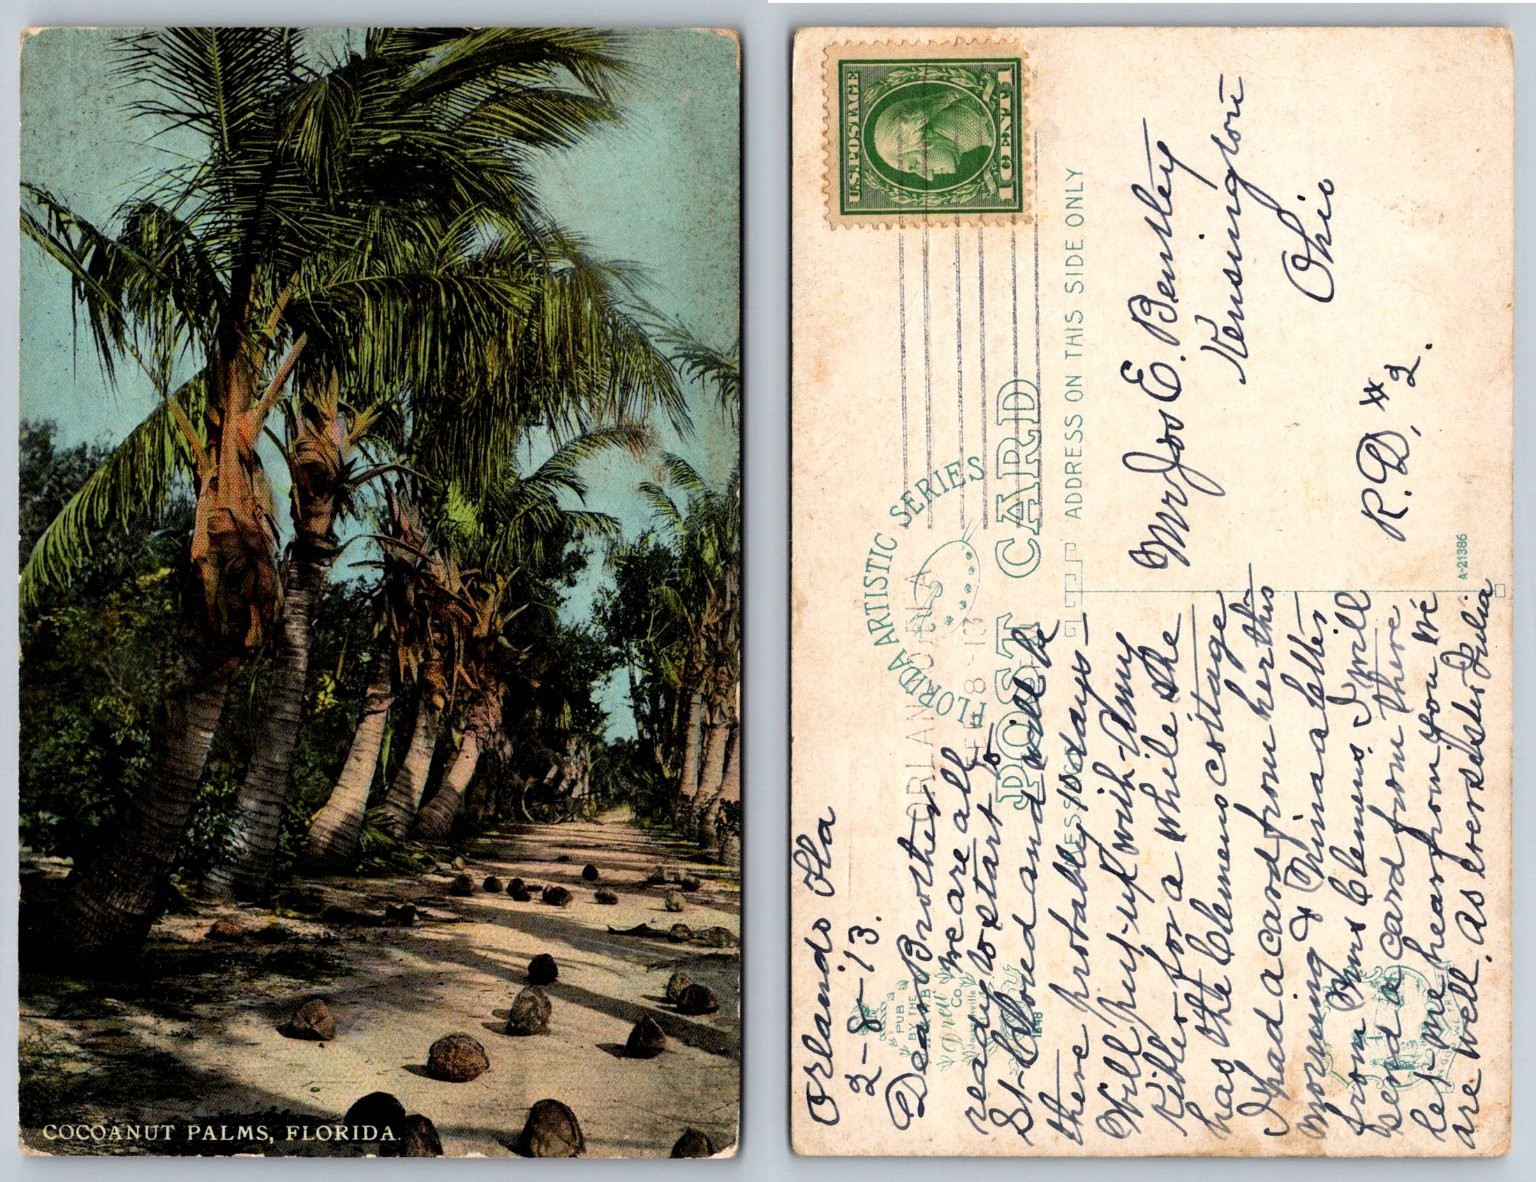 COCOANUT PALMS, FLORIDA.
U.S. POSTAGE
1 CENT 1
FLORIDA ARTISTIC SERIES
POST CARD
ADDRESS ON THIS SIDE ONLY
A-21386
ORLANDO FLA
8-13
Orlando Fla
2-8-13.
Dear Brother
we are all
ready to start to
St Cloud and will be
there probably 10 days
Will put up with Amy
Kibler for a while she
has the Clemens cottage
I had a card from her this
morning & Trina a letter
from Mrs Clemens I will
send a card from there
let me hear from you we
are well. As ever sister Julia
Mr Jos E. Bentley
Kensington
Ohio
R.D, # 2.